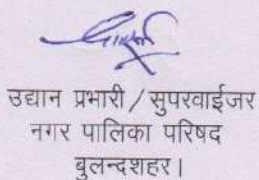 उद्यान प्रभारी / सुपरवाईजर
नगर पालिका परिषद
बुलन्दशहर।